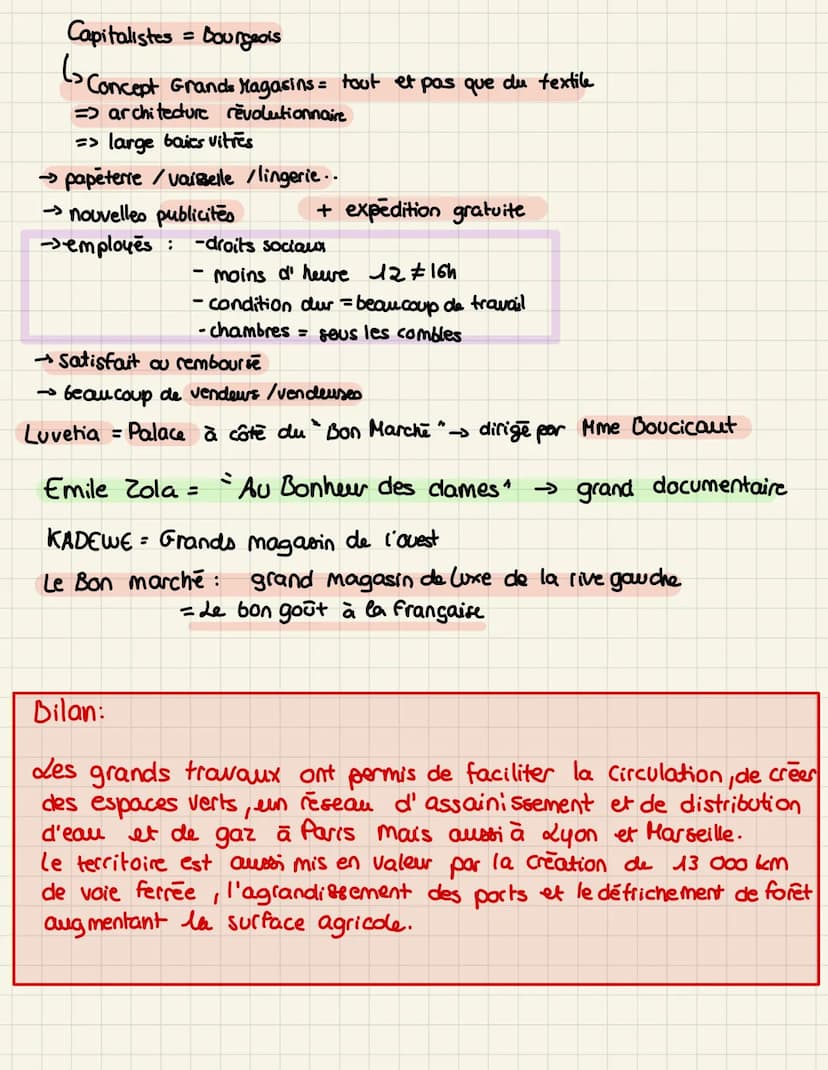 Capitalistes = bourgeois
↳ Concept Grands Magasins = tout et pas que du textile
=> architecture révolutionnaire
=> large baies vitrés
→ papèterie / vaisselle / lingerie..
→ nouvelles publicités + expédition gratuite
→ employés : - droits sociaux
- moins d'heure 12 ≠ 16h
- condition dur = beaucoup de travail
- chambres = sous les combles
→ satisfait ou remboursé
→ beaucoup de vendeurs / vendeuses
Luvetia = Palace à côté du "Bon Marché" → dirigé par Mme Boucicaut
Emile Zola = "Au Bonheur des dames" → grand documentaire
KADEWE = Grands magasin de l'ouest
Le Bon marché : grand magasin de luxe de la rive gauche
= Le bon goût à la Française
Bilan:
Les grands travaux ont permis de faciliter la circulation, de créer
des espaces verts, un réseau d'assainissement et de distribution
d'eau et de gaz à Paris mais aussi à Lyon et Marseille.
Le territoire est aussi mis en valeur par la création de 13 000 km
de voie ferrée, l'agrandissement des ports et le défrichement de forêt
augmentant la surface agricole.